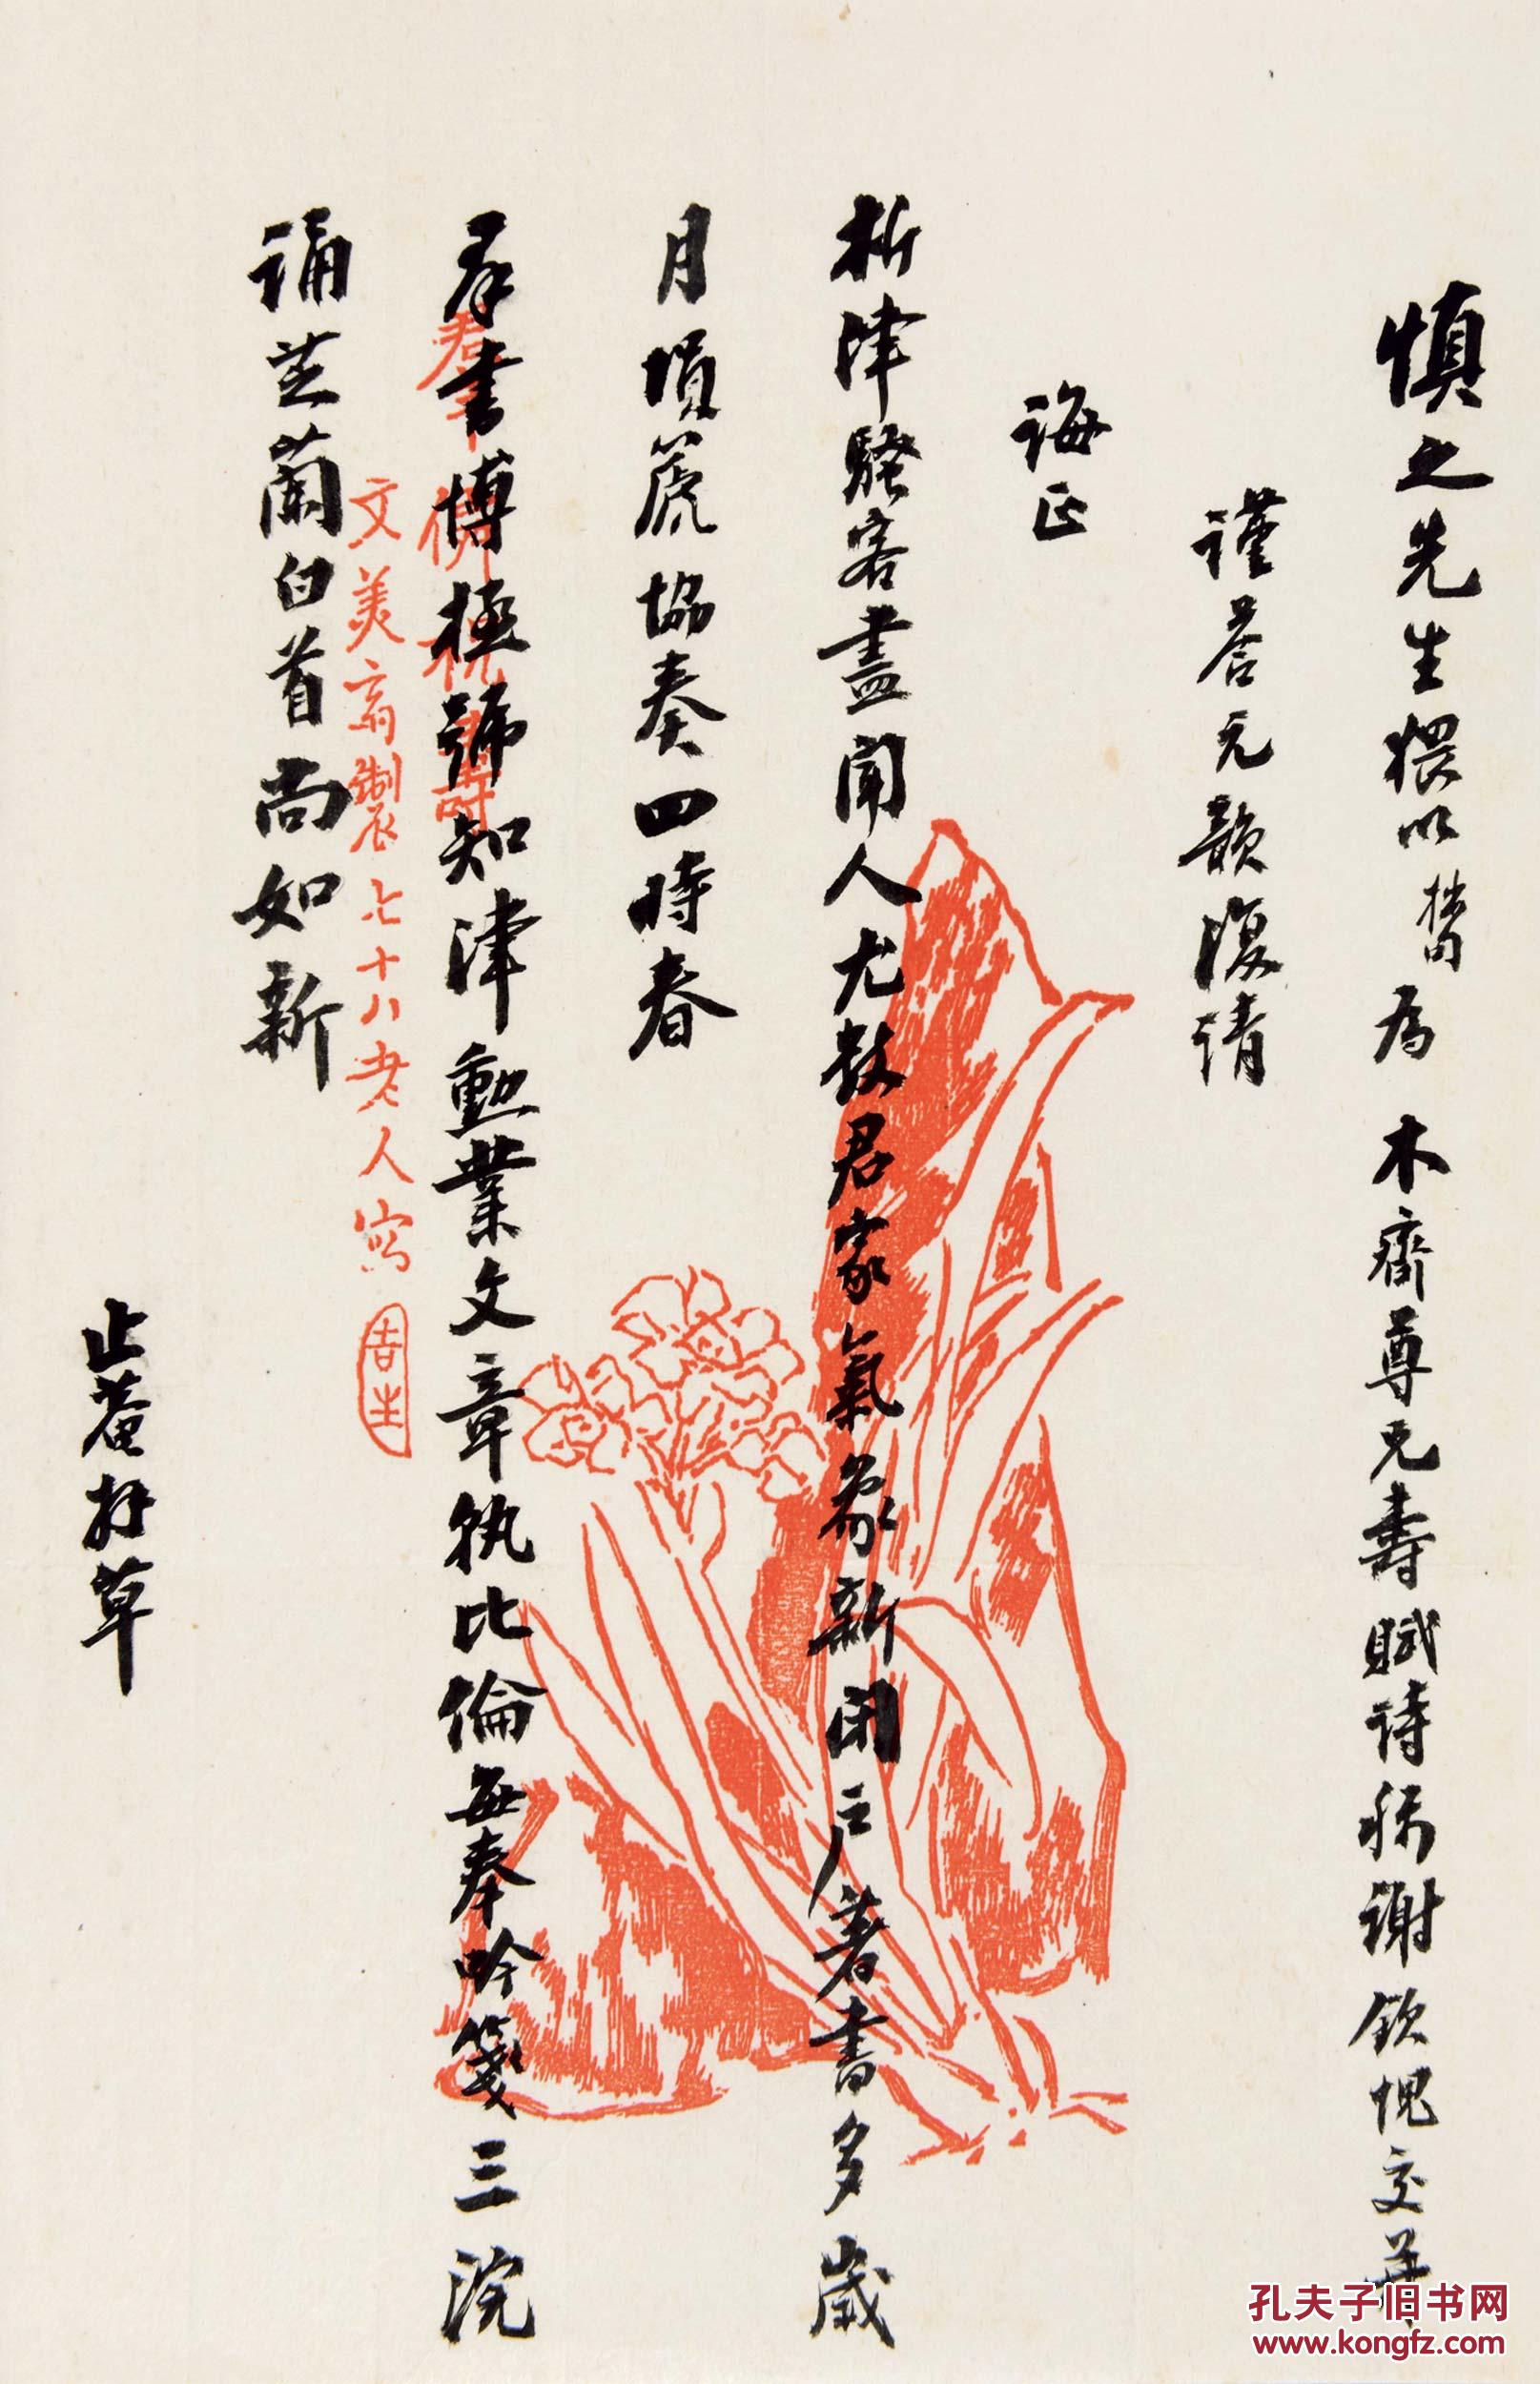 慎之先生猥以為木齋尊兄壽賦詩稱謝欽愧交并
謹荅元韻復請
誨正
析津騷客盡聞人尤數君家氣象新閉戶著書多歲
月塤箎協奏四時春
羣書博極號知津勳業文章孰比倫每奉吟箋三浣
誦芝蘭白首尚如新
止菴拜草
羣僊祝壽
文美齋製七十八老人寫
吉生
孔夫子旧书网
www.kongfz.com